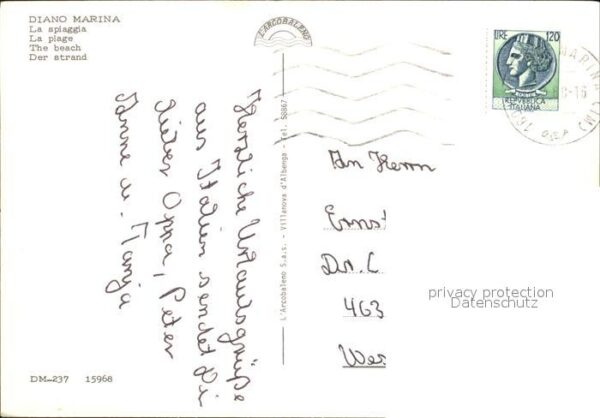 DIANO MARINA
La spiaggia
La plage
The beach
Der strand
L'ARCOBALENO
LIRE 120
REPVBBLICA
ITALIANA
MARINA (IM)
Herzliche Urlaubsgrüße
aus Italien sendet Di
lieber Oppa, Peter
Anne u. Tanja
L'Arcobaleno S.a.s. - Villanova d'Albenga - Tel. 58867
An Herrn
Erns
463
privacy protection
Datenschutz
DM-237 15968